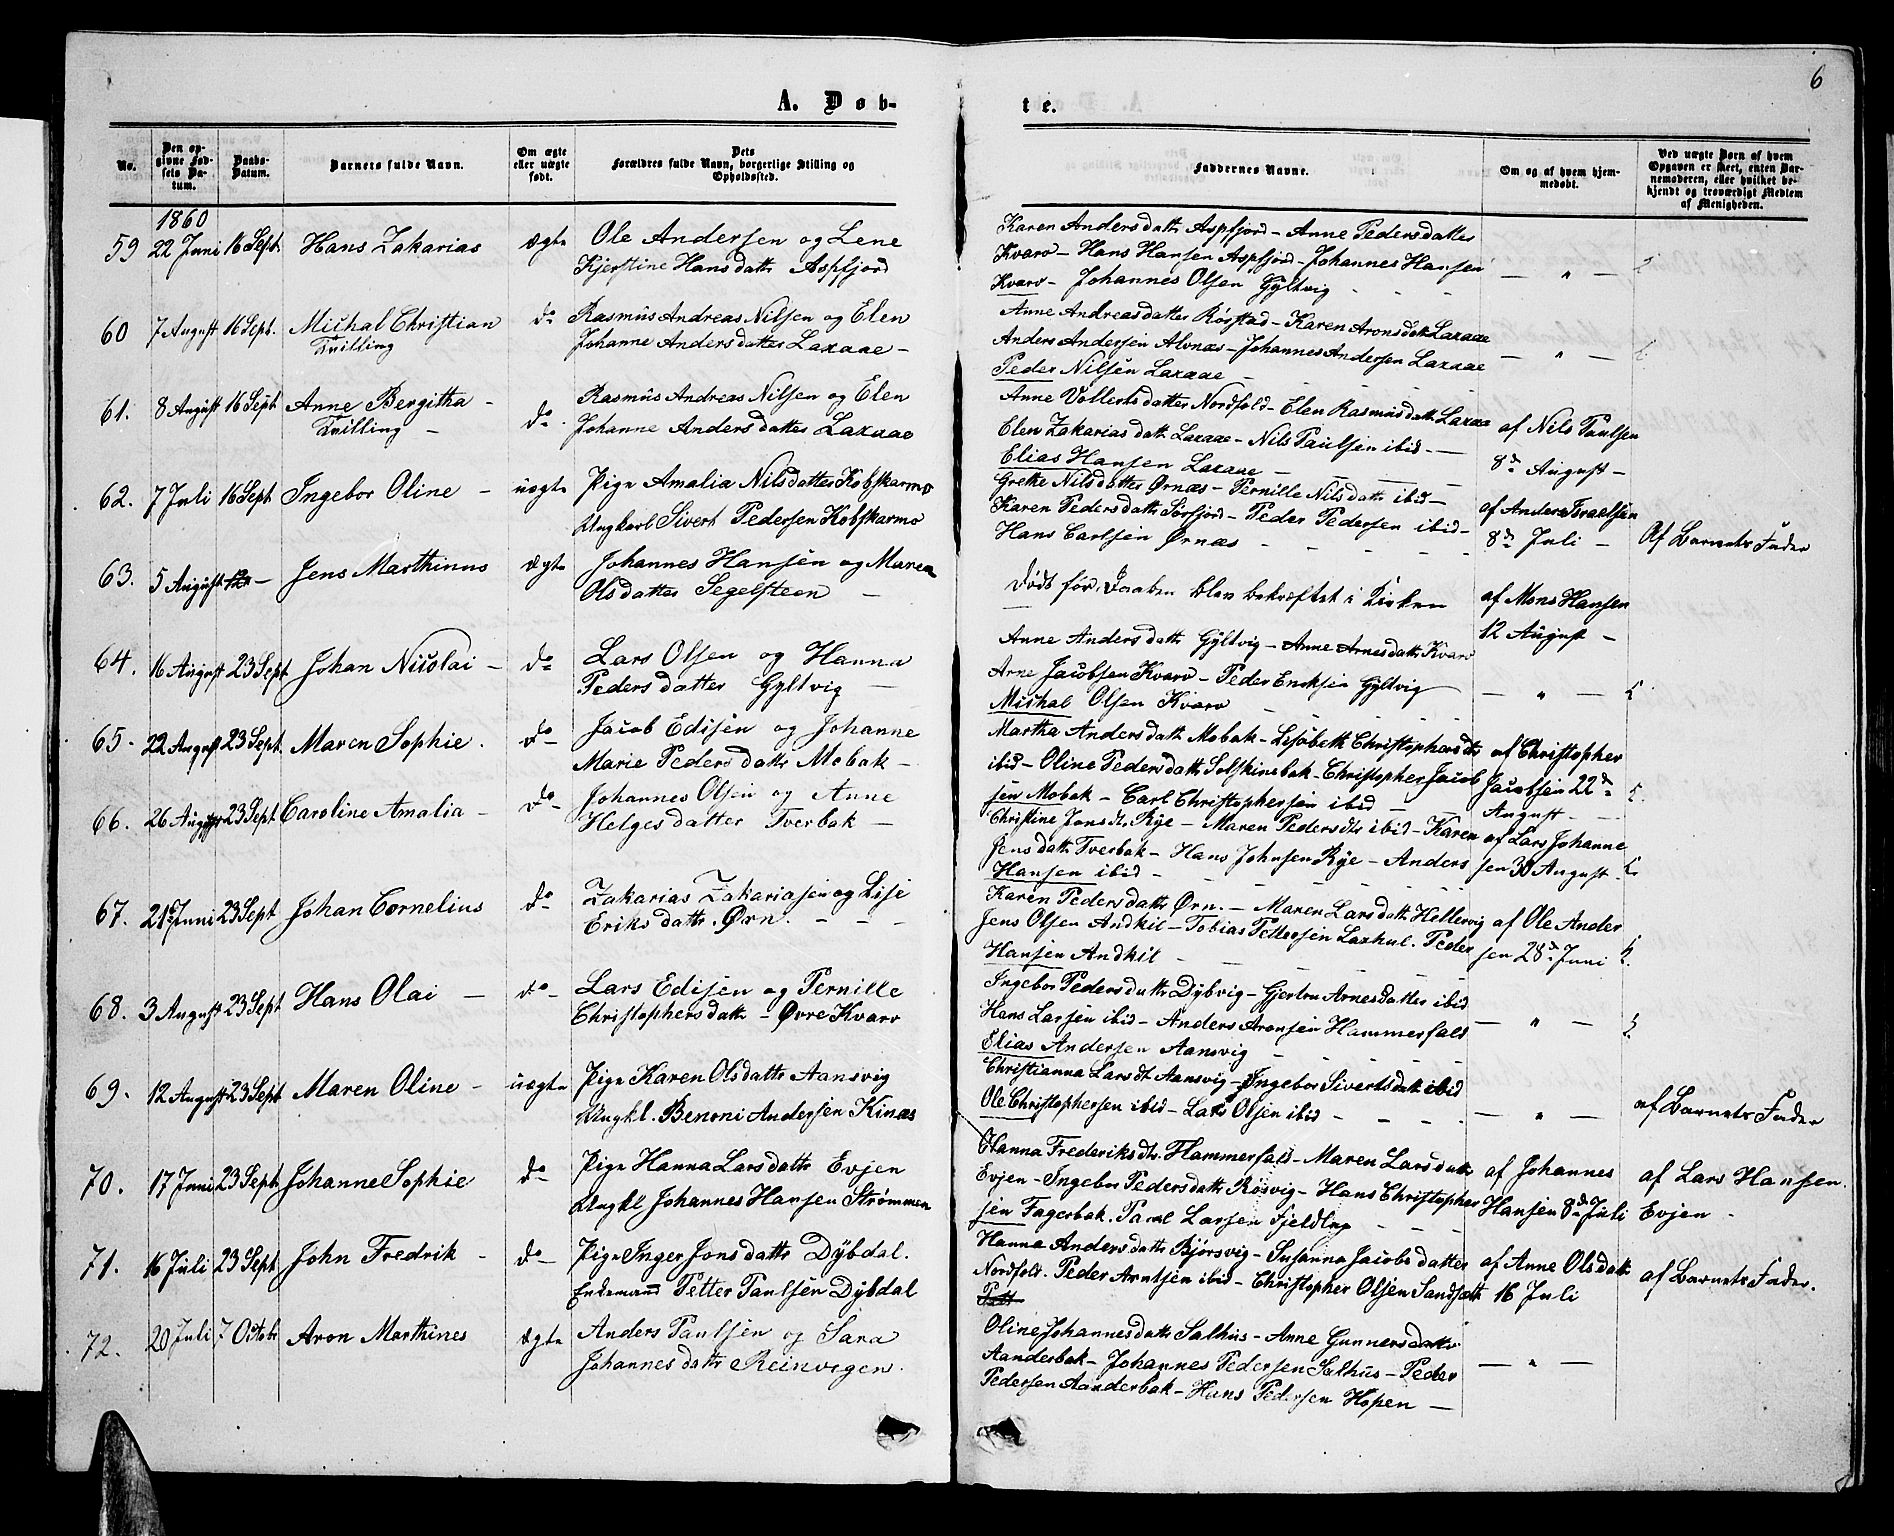 6
A. Døb-
te.
No.
Den opgivne Fødsels Datum.
Daabs-Datum.
Barnets fulde Navn.
Om ægte eller uægte født.
Dets Forældres fulde Navn, borgerlige Stilling og Opholdssted.
Faddernes Navne.
Om og af hvem hjemmedøbt.
Ved uægte Børn af hvem Opgaven er skeet, enten Barnemoderen, eller hvilket bekjendt og troværdigt Medlem af Menigheden.
1860
59 22 Juni 16 Sept. Hans Zakarias ægte Ole Andersen og Lene
Kjerstine Hansdattr Aspfjord
Karen Andersdattr Aspfjord - Anne Pedersdatter
Kvarv - Hans Hansen Aspfjord - Johannes Hansen
Kvarv - Johannes Olsen Gyltvig
— " —
60 7 August 16 Sept. Michal Christian do Rasmus Andreas Nilsen og Elen
Tvilling Johanne Andersdatter Laxaae -
Anne Andreasdatter Røsstad - Karen Aronsdatt Laxaae
Anders Andersen Alvnæs - Johannes Andersen Laxaae
Peder Nilsen Laxaae -
— " —
61. 8 August 16 Sept Anne Bergitha - do. Rasmus Andreas Nilsen og Elen
Tvilling - Johanne Andersdatter Laxaae
Anne Vollertsdatter Nordfold - Elen Rasmusdatt Laxaae
Elen Zakariasdatt Laxaae - Nils Paulsen ibid -
Elias Hansen Laxaae -
af Nils Paulsen
8de August -
62. 7 Juli 16 Sept Ingebor Oline - uægte Pige Amalia Nilsdatter Kobskarmo
Ungkarl Sivert Pedersen Kobskarmo
Grethe Nilsdatter Ørnæs - Pernille Nilsdattr ibid -
Karen Pedersdattr Sørfjord - Peder Pedersen ibid -
Hans Carlsen Ørnæs - - - -
af Anders Israelsen
8de Juli -
Af Barnets Fader
63. 5 August — Jens Marthinus ægte Johannes Hansen og Maren
Olsdatter Segelsteen -
Dødt før Daaben blev bekræftet i Kirken
af Mons Hansen
12 August -
64. 16 August 23 Sept Johan Nicolai - do Lars Olsen og Hanna
Pedersdatter Gyltvig -
Anne Andersdattr Gyltvig - Anne Arnesdattr Kvarv
Arne Jacobsen Kvarv - Peder Ericksen Gyltvig
Michal Olsen Kvarv
— " —
65. 22 August 23 Sept. Maren Sophie. do Jacob Edisen og Johanne
Marie Pedersdattr Mobak -
Martha Andersdattr Mobak - Lisabeth Christophersdtr
ibid - Oline Pedersdattr Solskinsbak - Christopher Jacob
sen Mobak - Carl Christophersen ibid - -
af Christopher
Jacobsen 22de
August -
66. 26 August 23 Sept. Caroline Amalia - do Johannes Olsen og Anne
Helgesdatter Tverbak -
Christine Jonsdtr Rye - Maren Pedersdtr ibid - Karen
Jensdattr Tverbak - Hans Johnsen Rye - Anders
Hansen ibid -
af Lars Johanne
sen 30 August -
67. 21de Juni 23 Sept Johan Cornelius do Zakarias Zakariasen og Lise
Eriksdattr. Ørn. - -
Karen Pedersdattr Ørn. - Maren Larsdattr Hellervig
Jens Olsen Andkil - Tobias Pettersen Laxhul. Peder
Hansen Andkil -
af Ole Ander
sen 28de Juni
68. 3 August 23 Sept Hans Olai - do Lars Edisen og Pernille
Christophersdattr - Øvre Kvarv
Ingebor Pedersdattr Dybvig - Gjertru Arnesdatter ibid
Hans Larsen ibid - Anders Aronsen Hammerfald
Elias Andersen Aansvig
— " —
69. 12 August 23 Sept Maren Oline - uægte Pige Karen Olsdattr Aansvig
Ungkl. Benoni Andersen Kinæs
Christianna Larsdt. Aansvig - Ingebor Sivertsdatt ibid
Ole Christophersen ibid - Lars Olsen ibid -
— " —
af Barnets Fader
70. 17 Juni 23 Sept Johanne Sophie do Pige Hanna Larsdattr Evjen
Ungkl Johannes Hansen Strømmen
Hanna Frederiksdtr. Hammerfald - Maren Larsdatt
Evjen - Ingebor Pedersdattr Røsvig - Hans Christopher
sen Fagerbak. Parel Larsen Fjeldlap - -
af Johannes
Hansen 8de Juli
af Lars Hansen
Evjen -
71. 16 Juli 23 Sept John Fredrik - do Pige Inger Jonsdattr Dybdal.
Enkemand Petter Paulsen Dybdal
Hanna Andersdattr Bjørsvig - Susanna Jacobsdatter
Nordfold. Peder Arntsen ibid - Christopher Olsen Sandsætt
af Anne Olsdatt
16 Juli
af Barnets Fader.
72. 20 Juli 7 Octobr Aron Marthines ægte Anders Paulsen og Sara
Johannesdattr Reinvegen.
Oline Johannesdattr Salhus - Anne Gunnersdattr
Aanderbak - Johannes Pedersen Salhus - Peder
Pedersen Aanderbak - Hans Pedersen Hopen -
— " —